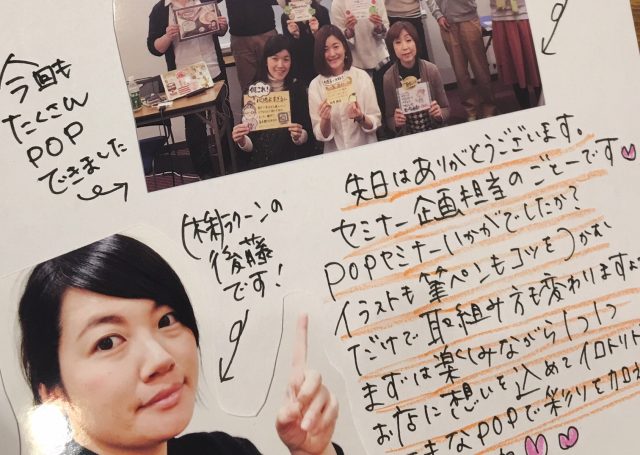 今回も
たくさん
POP
できました
(株)ラクーンの
後藤
です!
先日はありがとうございます。
セミナー企画担当のごとーです♡
POPセミナーいかがでしたか?
イラストも筆ペンもコツをつかむ
だけで取組み方も変わりますよ
まずは楽しみながら1つ1つ
お店に想いを込めてイロトリド
なPOPで彩りを加え